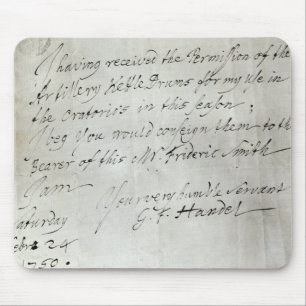 I having received the Permission of the
Artillery Kettle Drums for my use in
the Oratorio's in this Season;
I beg you would consign them to the
Bearer of this Mr. Frideric Smith
I am
Your very humble Servant
G. F. Handel
Saturday
Febr: 24
1750.